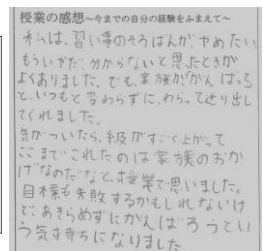 授業の感想～今までの自分の経験をふまえて～
私は、習い事のそろばんが、やめたい
もういやだ、分からないと思ったときが
よくありました。でも、家族ががんばろう
と、いつもと変わらずに、わらって送り出し
てくれました。
気がついたら、級がすごく上がって
ここまでこれたのは家族のおか
げなのだなと、授業で思いました。
目標も失敗するかもしれないけ
ど、あきらめずにがんばろうとい
う気持ちになりました